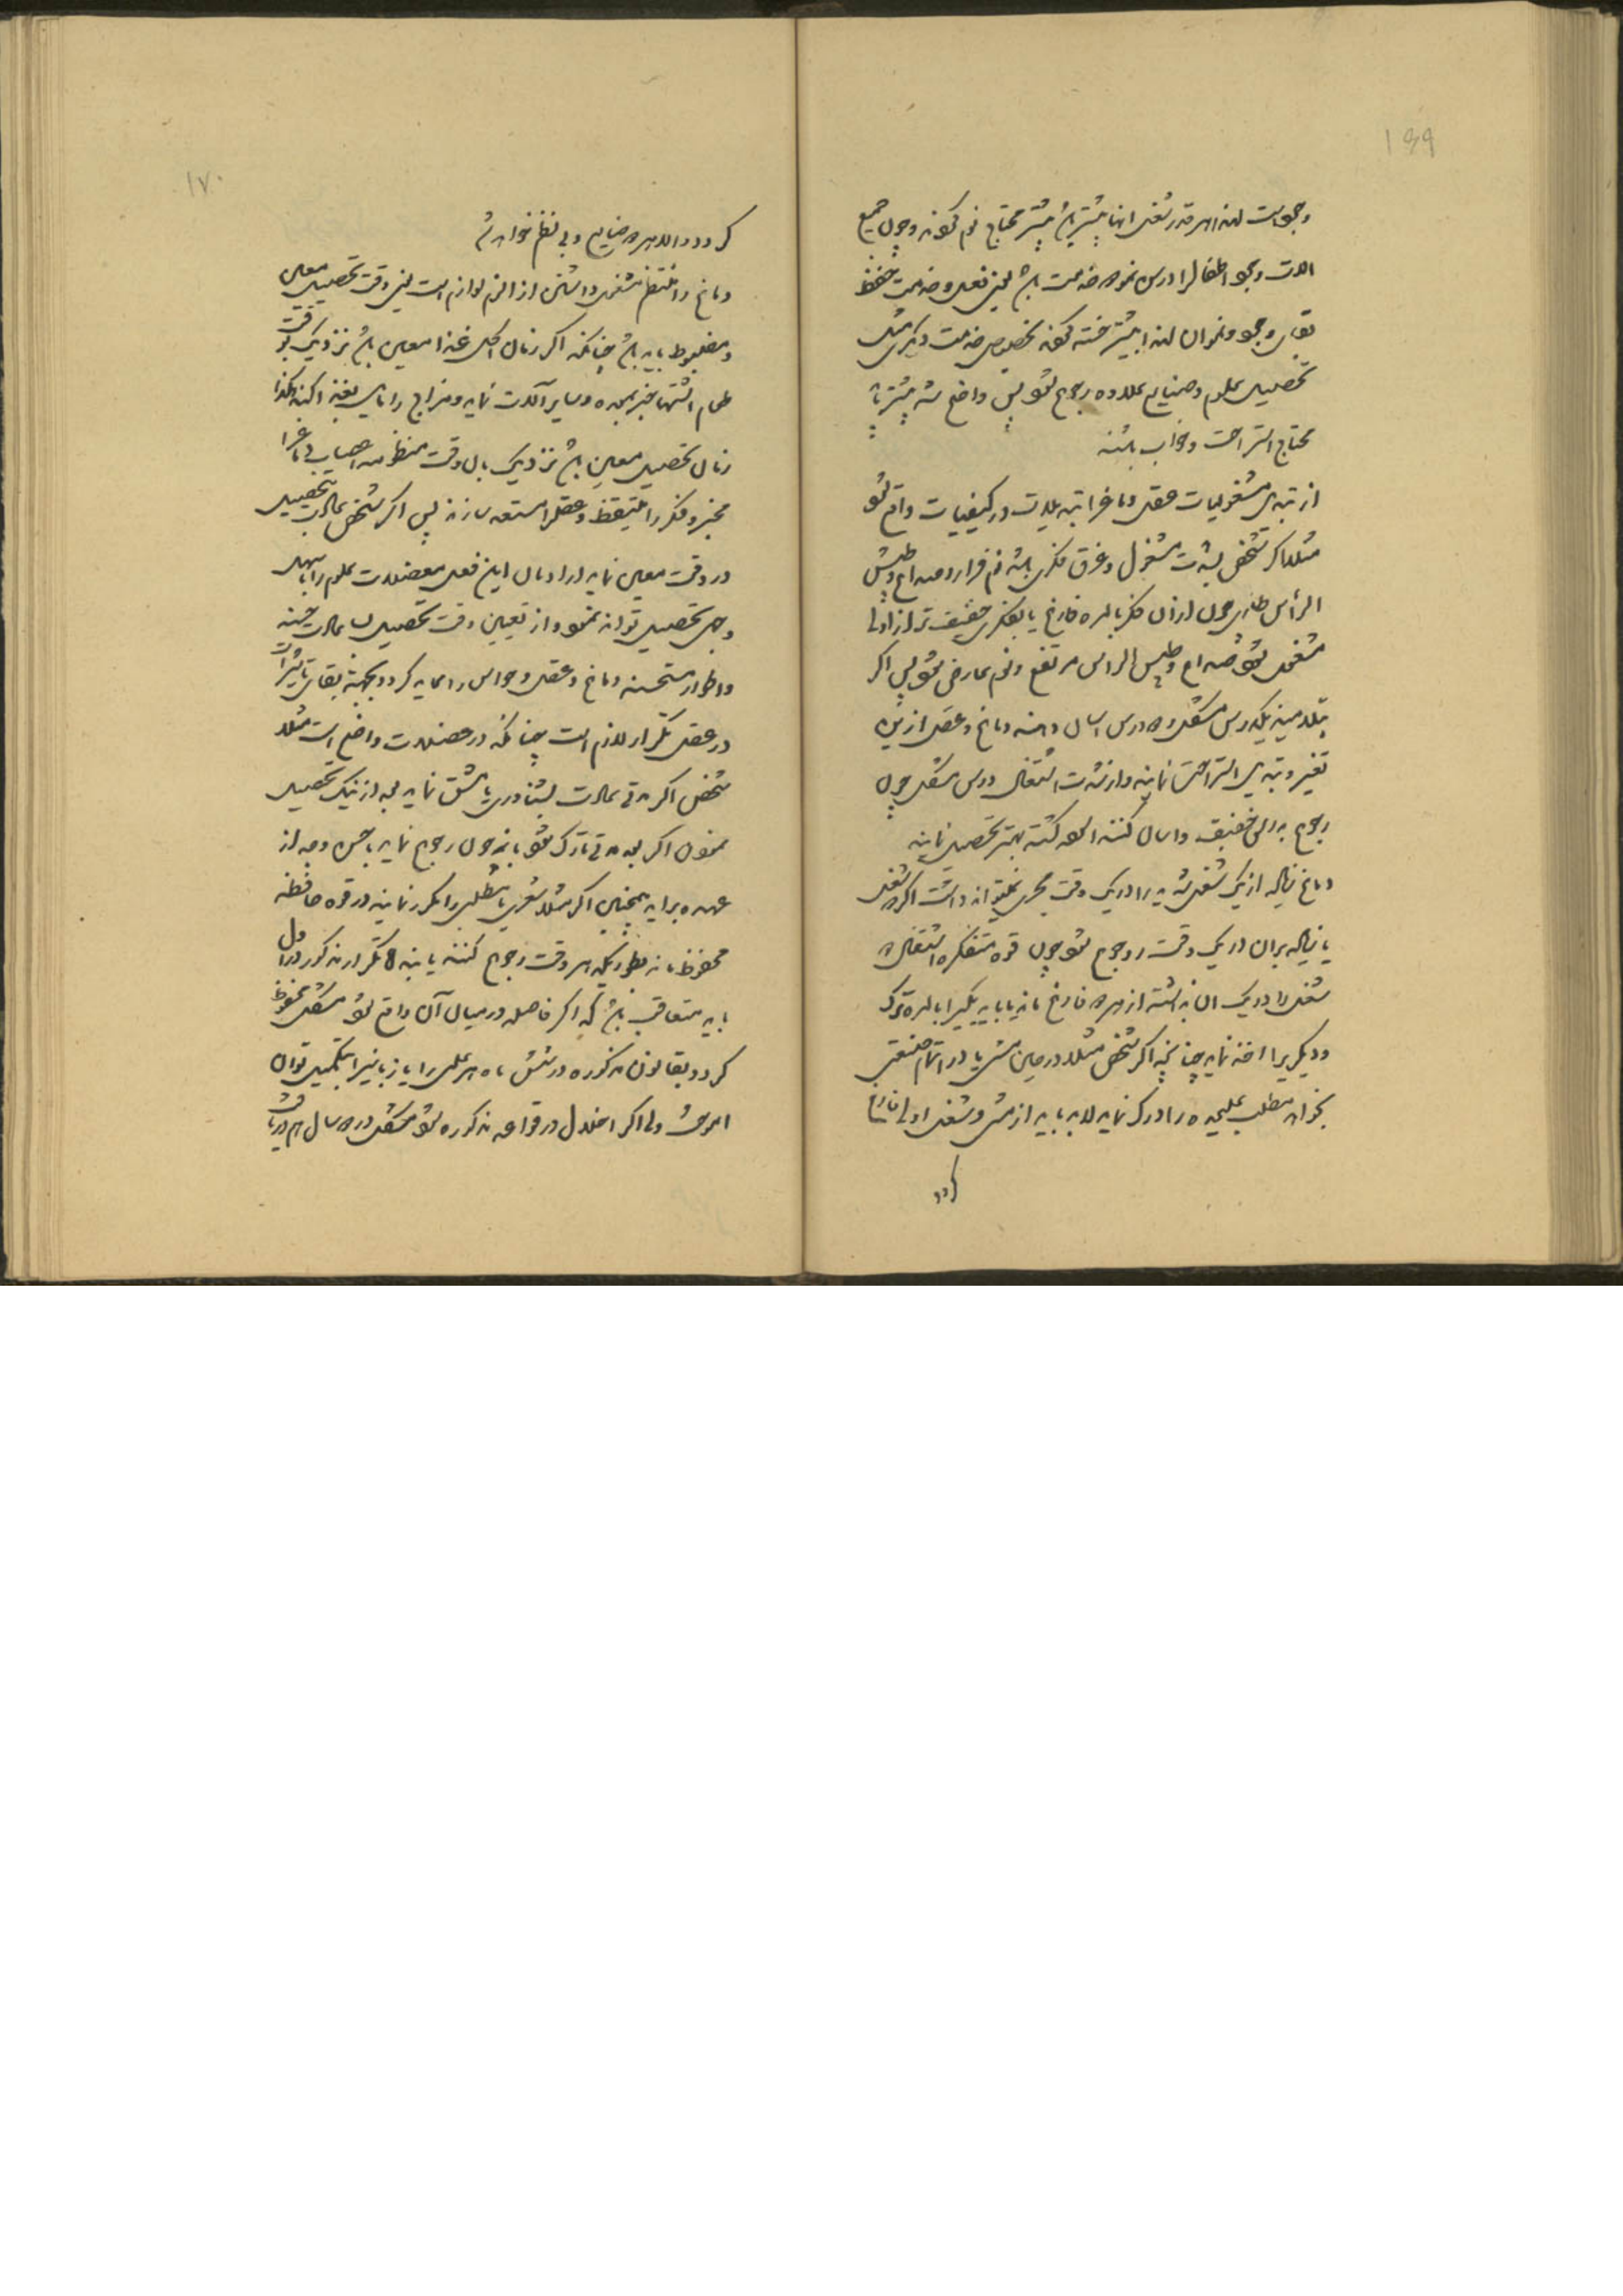 ۱۶۹
وجود است لهذا هر قدر شغل آنها بیشتر باشد بیشتر محتاج نوم شوند و چون جمیع
آلات وجود اطفال را درس نمو و خدمت باشد یعنی فعل و خدمت حفظ
بقای وجود و نمو آن لهذا بیشتر خسته شوند بخصوص خدمت دیگری مثل
تحصیل علوم و صنایع علاوه رجوع شود پس واضح شد بیشتر باید
محتاج استراحت و خواب باشند
از تبدیل مشغولیات عقل و دماغ را تبدیلات در کیفیات واقع شود
مثلا اگر شخص بشدت مشغول و غرق فکری باشد نوم فرار و صداع و طیش
الرأس طاری چون از آن فکر بالمره فارغ یا بفکری خفیف تر از اولی
مشغول شود صداع و طیش الرأس مرتفع و نوم عارض شود پس اگر
تلامیذ بیک درس مشکل و دو درس آسان دهند دماغ و عقل ازین
تغییر و تبدیل استراحت نمایند و از شدت اشتغال درس مشکل چون
رجوع بدرس خفیف و آسان کنند آسوده گشته بهتر تحصیل نمایند
دماغ زیاده از یک شغل شدید را در یک وقت مجری نمیتواند داشت اگر دو شغل
یا زیاده بر آن در یک وقت رجوع شود چون قوه متفکره اشتغال دو
شغل را در یک آن نداشته از هر دو فارغ ماند یا باید یکی را بالمره ترک
و دیگری را اخذ نماید چنانچه اگر شخص مثلا در حین مشی یا در اتمام صنعتی
بخواهد مطلب علیحده را درک نماید لابد باید از مشی و شغل اولی فارغ
گردد
۱۷۰
گردد و الا هر دو ضایع و بی نظم خواهد شد
دماغ را منتظم مشغول داشتن از الزم لوازم است یعنی وقت تحصیل معین
و مضبوط باید باشد چنانکه اگر زمان اکل غذا معین باشد نزدیک بوقت
طعام اشتها خبر بمعده و سایر آلات نماید و مزاج را مایل بغذا کند هکذا
زمان تحصیل معین باشد نزدیک بآن وقت منظومه اعصاب دماغ را
مخبر و فکر را متیقظ و عقل را مستعد سازند پس اگر شخص عادت بتحصیل
در وقت معین نماید او را بآن این فعل معضلات علوم را باسهل
وجهی تحصیل تواند نمود و از تعیین وقت تحصیل بسا عادات حسنه
و اطوار مستحسنه دماغ و عقل و حواس را عاید گردد و بجهة بقای تأثیرات
در عقل تکرار لازم است چنانکه در عضلات واضح است مثلا
شخص اگر مدتی عادت بشناوری یا مشق نماید بعد از نیک تحصیل
نمودن اگر بعد مدتی تارک شود باز چون رجوع نماید باحسن وجه از
عهده برآید همچنین اگر مثلا شعری یا مطلبی را مکرر نمایند در قوه حافظه
محفوظ ماند بطوریکه هر وقت رجوع کنند یابند اما تکرار مذکور در اول
باید متعاقب باشد که اگر فاصله در میان آن واقع شود مشکل محفوظ
گردد و بقانون مذکوره در شش ماه هر علمی را یا زبانی را بتکمیل توان
آموخت ولی اگر اخلال در قواعد مذکوره شود مشکل در دو سال هم دریافت